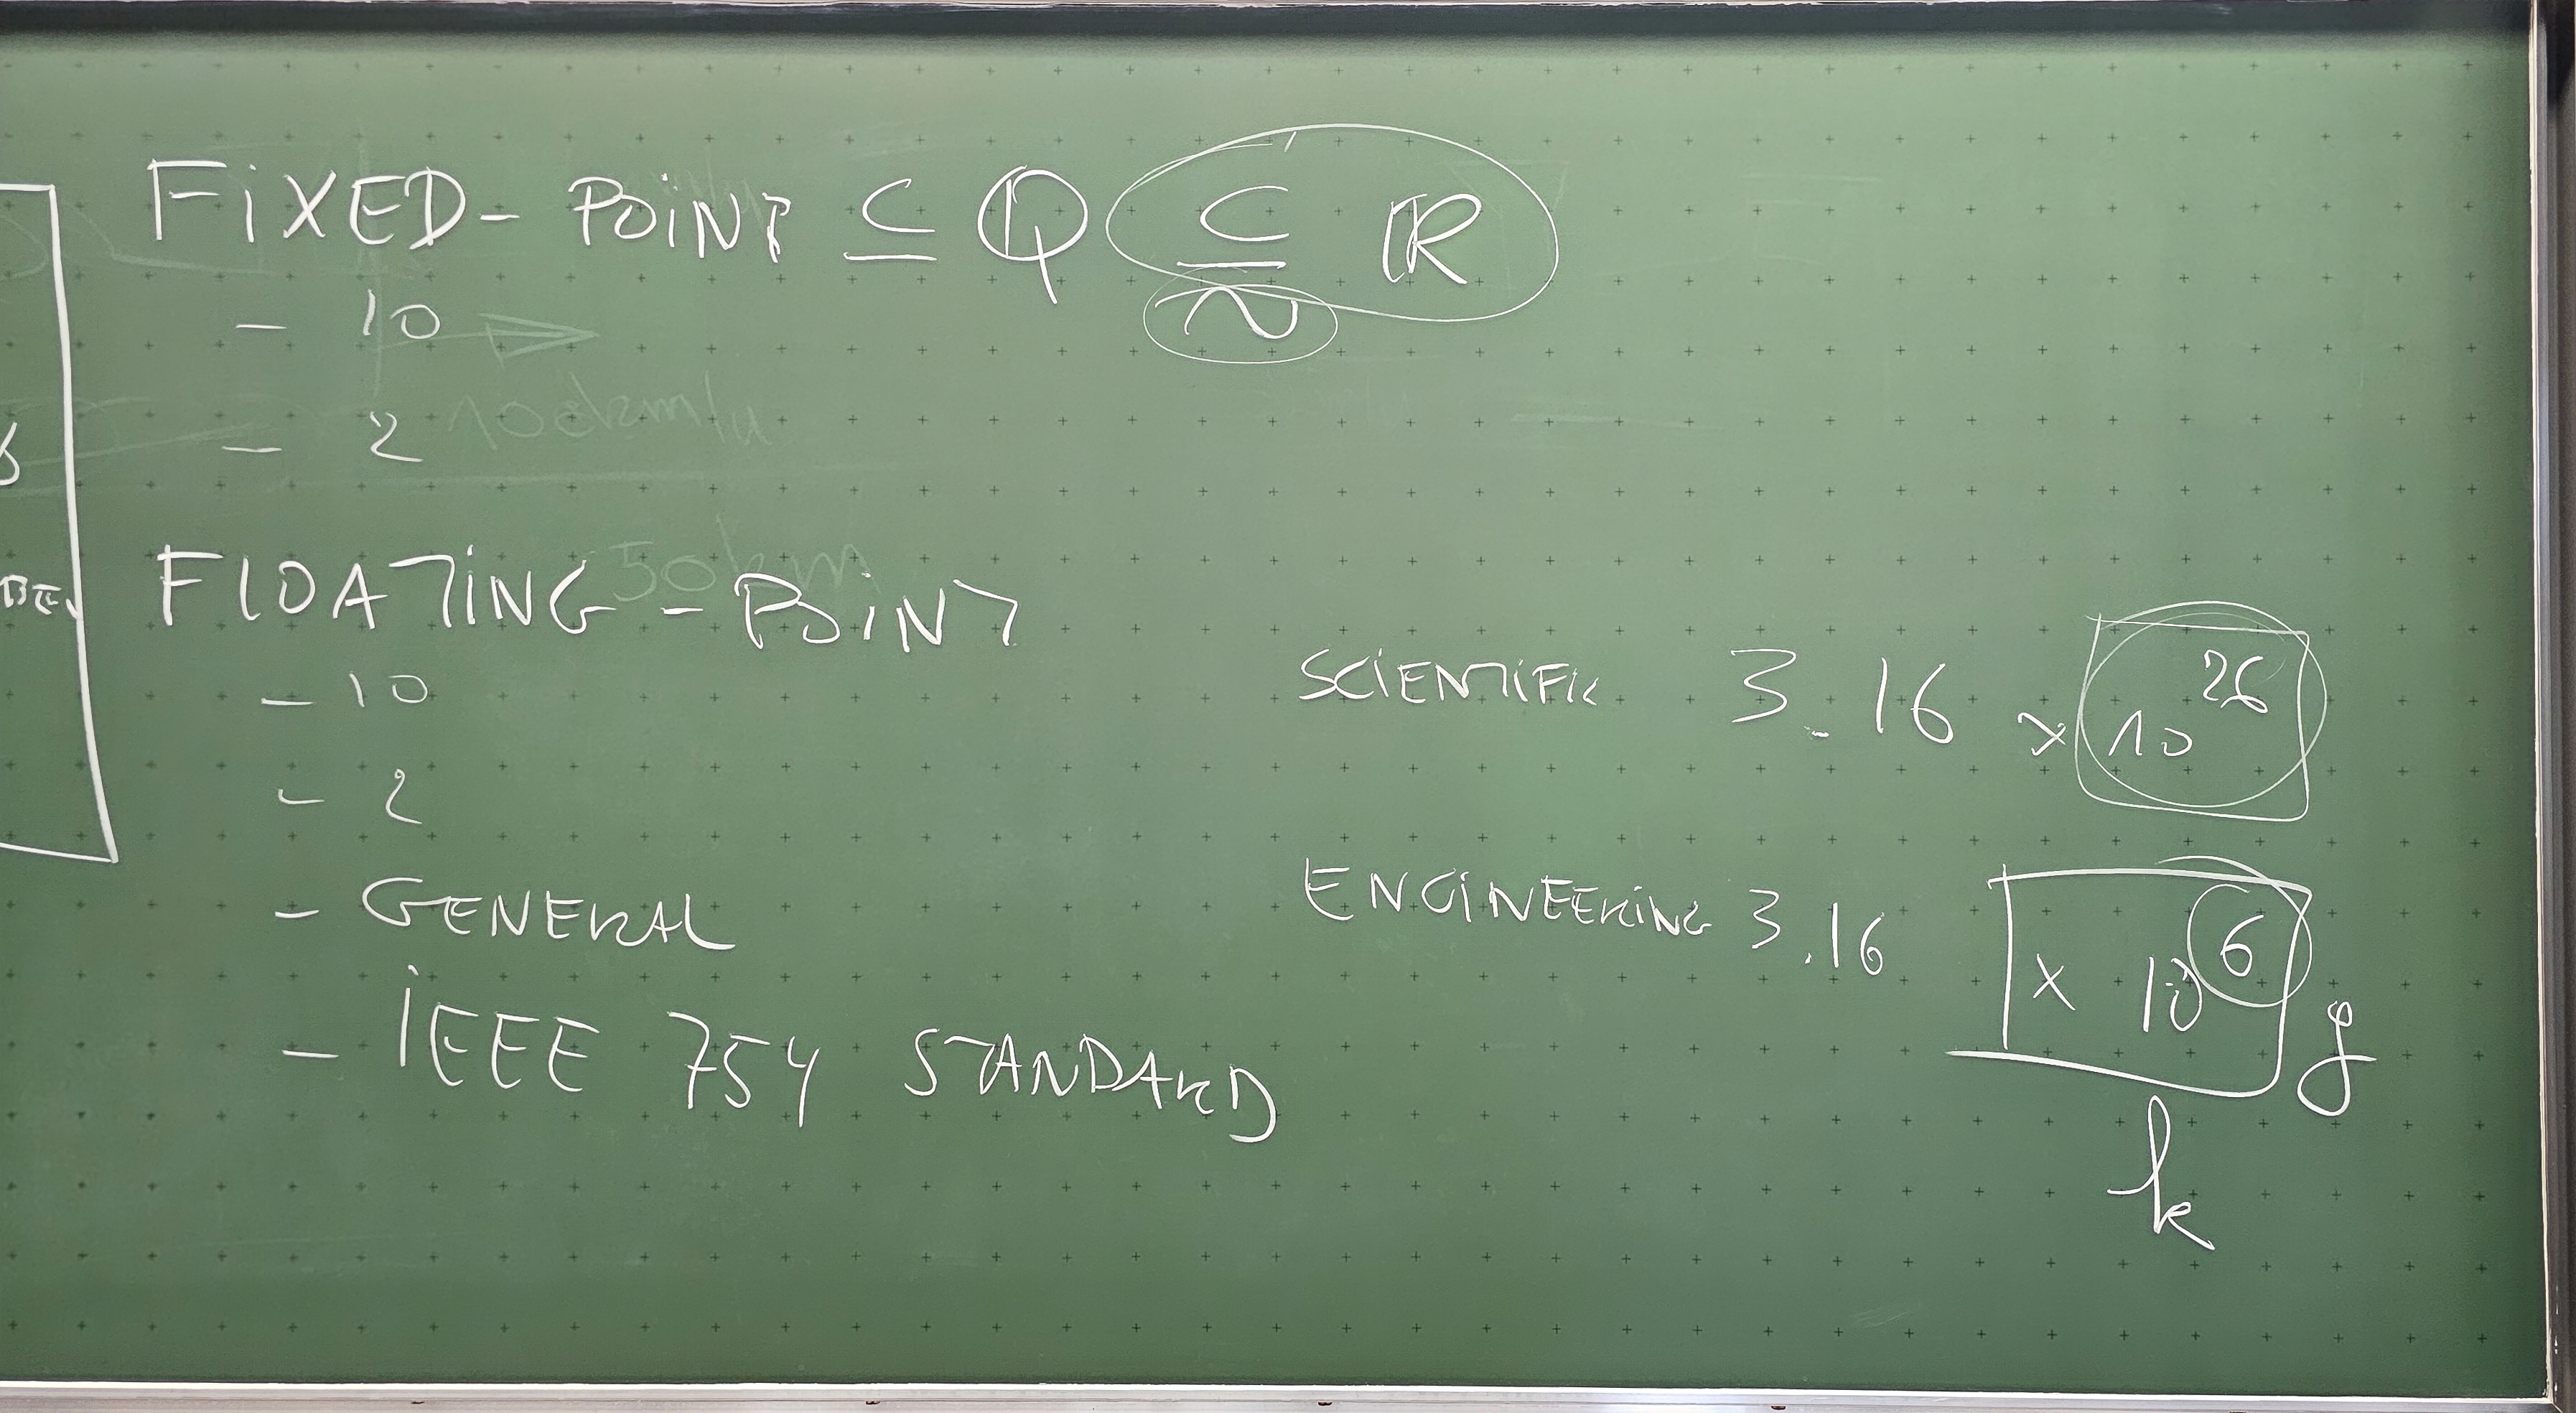 FiXED - POiNT ⊆ ℚ ⊆ ℝ
~
- 10
- 2 10dkm/u
50km
FLOATiNG - POiNT
- 10
- 2
- GENERAL
- iEEE 754 STANDARD
SCiENTiFiC 3.16 x 10^26
ENGiNEERiNG 3.16 x 10^6 g
k
6
BE